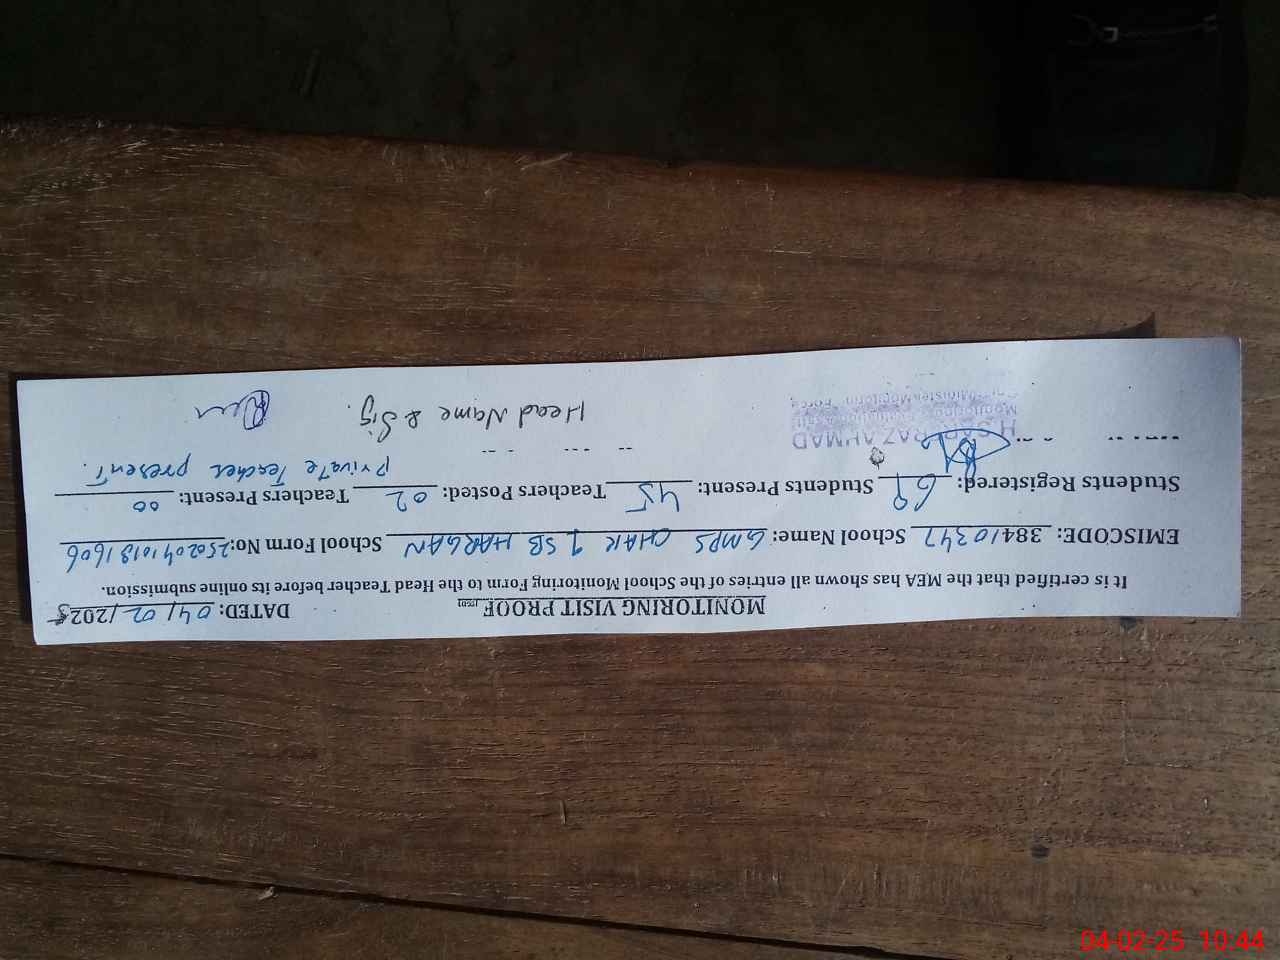 MONITORING VISIT PROOF DATED: 04/02/2025
It is certified that the MEA has shown all entries of the School Monitoring Form to the Head Teacher before its online submission.
EMISCODE: 38410347 School Name: GMPS CHAK 9 SB HARGAN School Form No: 25020410191606
Students Registered: 69 Students Present: 45 Teachers Posted: 02 Teachers Present: 00
Private Teacher present.
H SARFRAZ AHMAD
Head Name & Sig.
04-02-25 10:44